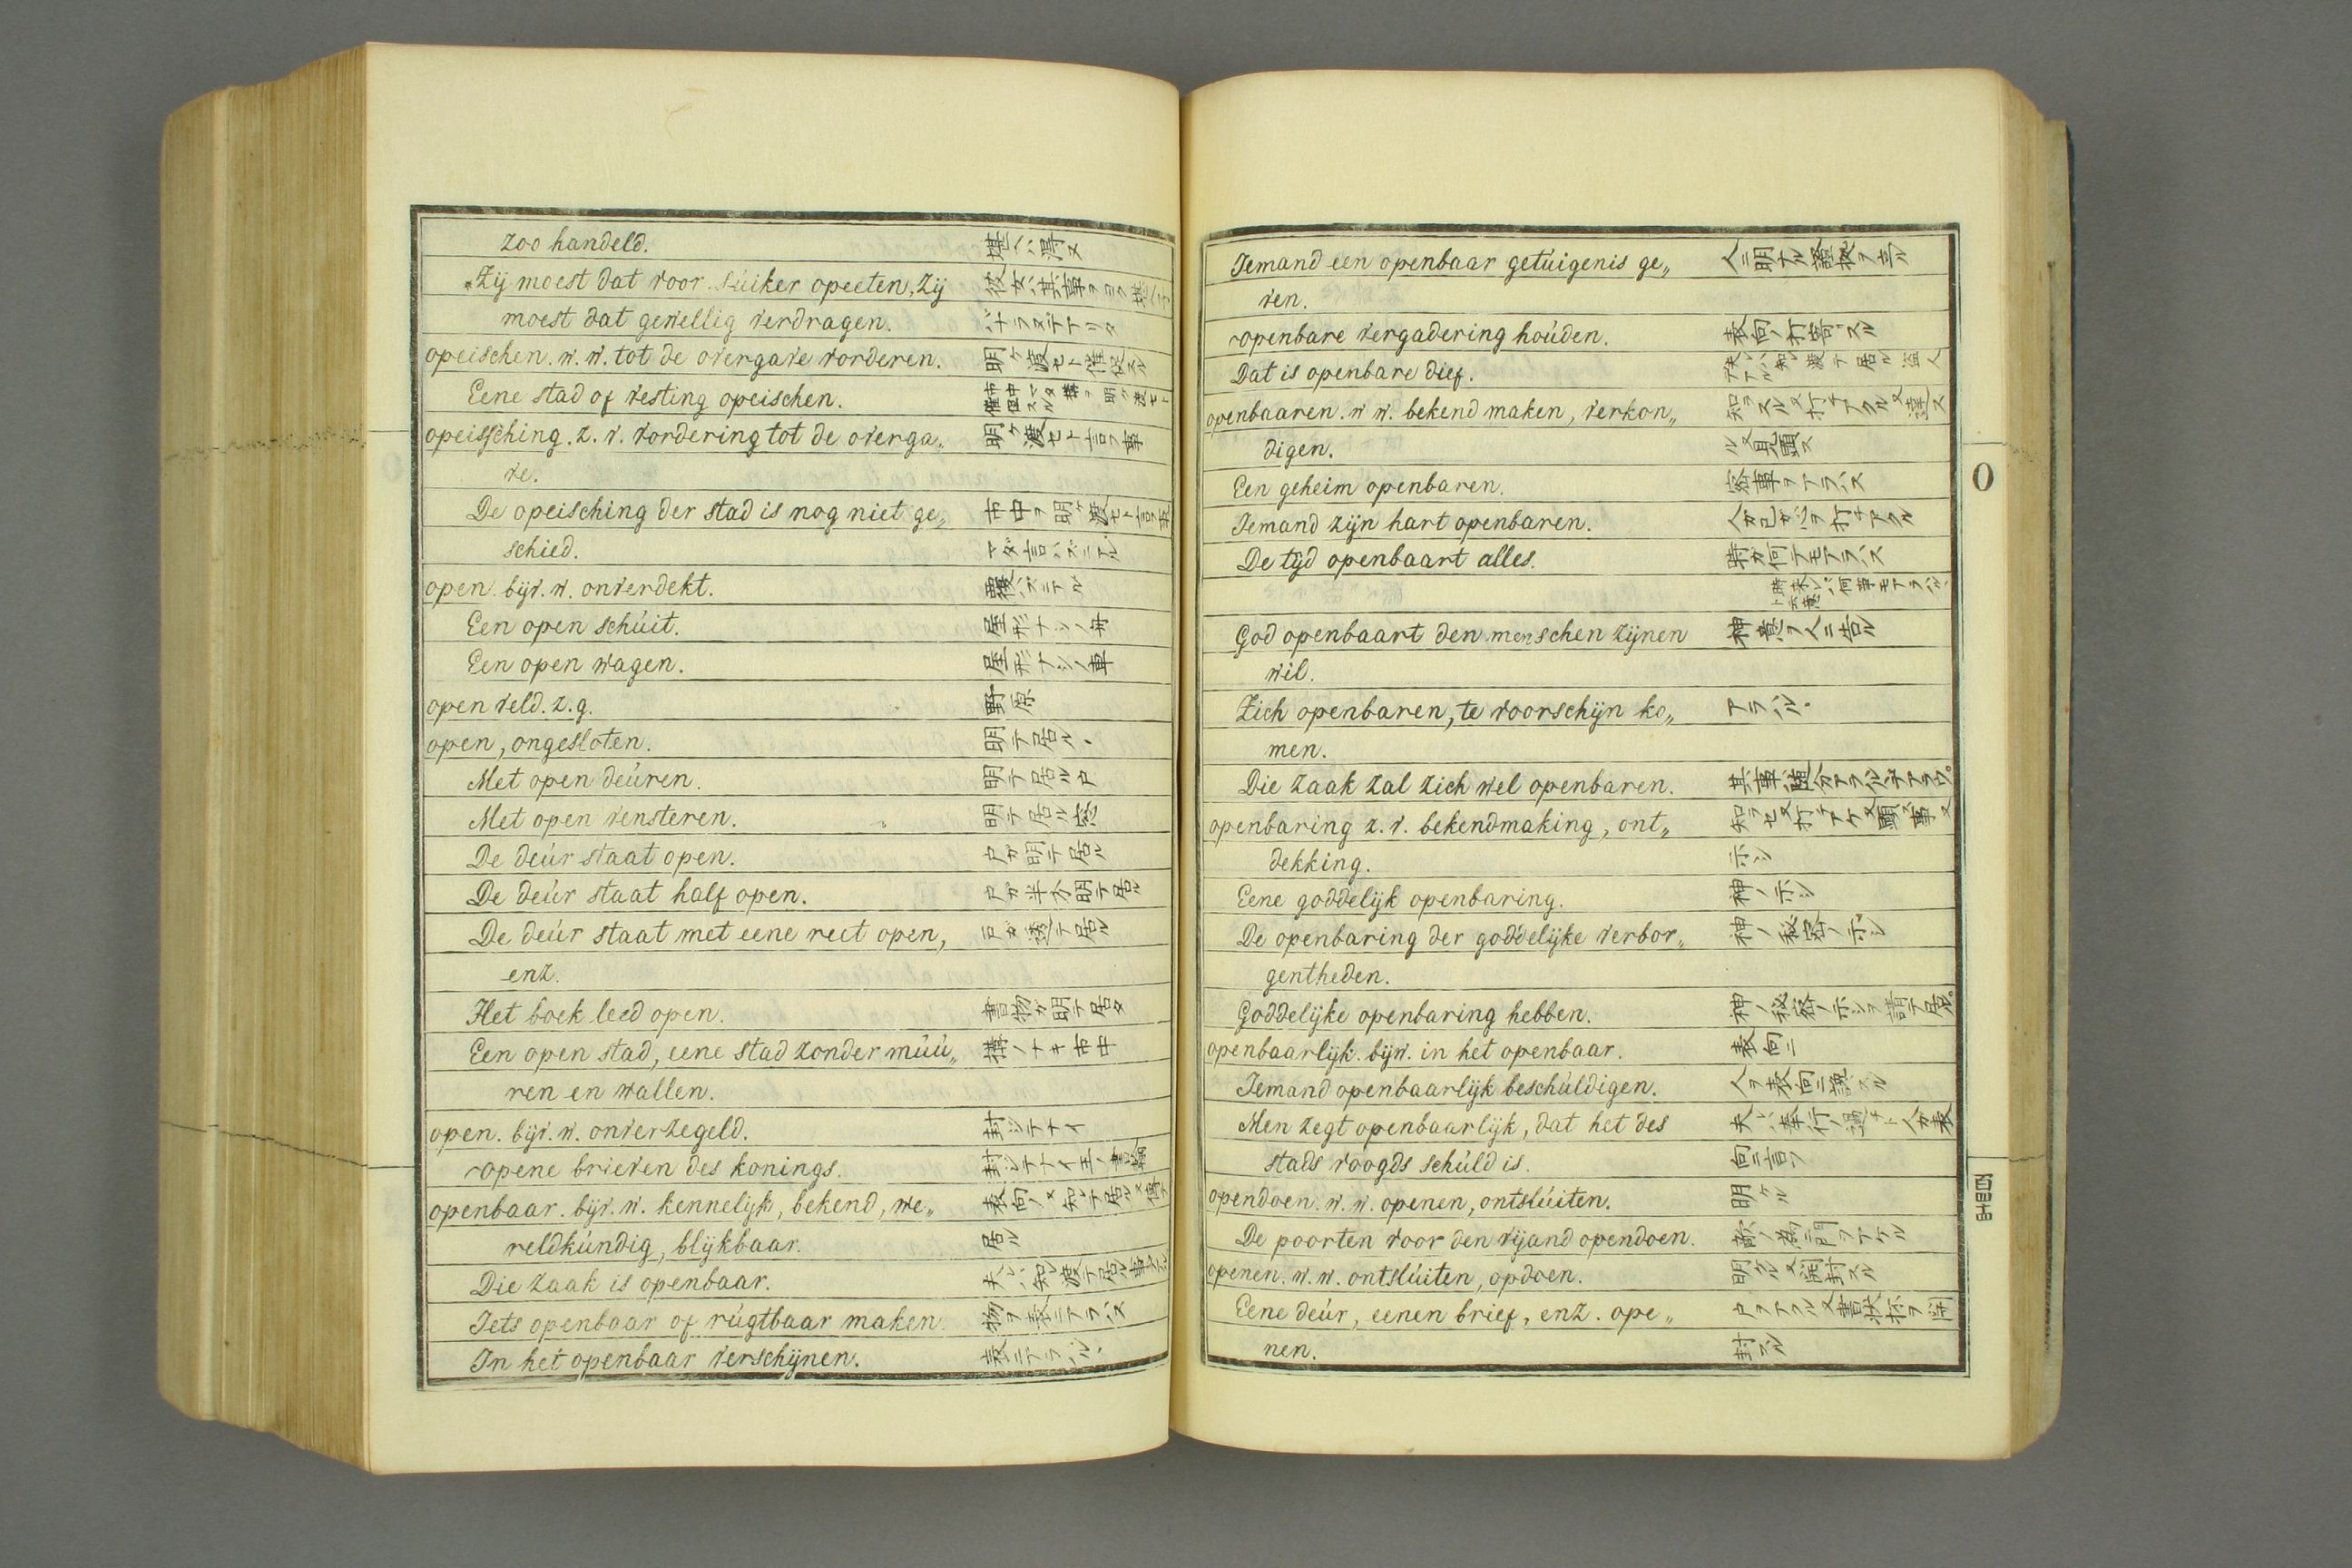 zoo handeld. 堪ヘハ得ヌ
Zij moest dat voor súiker opeeten, zij 彼女ハ其事ヲヨク堪ヘ子
moest dat gewellig verdragen. バナラヌデアリタ
opeischen. w. w. tot de overgave vorderen. 明ケ渡セト催促スル
Eene stad of vesting opeischen.
opeissching. z. v. vordering tot de overga„ 明ケ渡セト言フ事
ve.
De opeisching der stad is nog niet ge„ 市中ヲ明ケ渡セト言フ事
schied. マダ言ハズニアル
open. bijv. w. onverdekt. 覆ハズニアル
Een open schúit. 屋形ナシノ舟
Een open wagen. 屋形ナシノ車
open veld. z. g. 野原
open, ongesloten. 明テ居ル、
Met open deúren. 明テ居ル戸
Met open vensteren. 明テ居ル窓
De deúr staat open. 戸ガ明テ居ル
De deúr staat half open. 戸ガ半分明テ居ル
De deúr staat met eene reet open, 戸ガ透テ居ル
enz.
Het boek leed open. 書物ガ明テ居タ
Een open stad, eene stad zonder múú„ 搆ノナキ市中
ren en wallen.
open. bijv. w. onverzegeld. 封ジテナイ
opene brieven des konings. 封ジテナイ王ノ書翰
openbaar. bijv. w. kennelijk, bekend, we„
reldkúndig, blijkbaar. 居ル
Die zaak is openbaar.
Iets openbaar of rúgtbaar maken. 物ヲ表ニアラハス
In het openbaar verschijnen. 表ニアラハル、
Iemand een openbaar getúigenis ge„ 人ニ明ナル證拠ヲ立ル
ven.
openbare vergadering hoúden. 表向ノ打寄ヲスル
Dat is openbare dief. 夫レハ知レ渡テ居ル盗人デアル
openbaaren. w w. bekend maken, verkon„ 知ラスル又打チアクル又達ス
digen. ル又見顕ス
Een geheim openbaren. 密事ヲアラハス
Iemand zijn hart openbaren.
De tijd openbaart alles. 時ガ何デモアラハス

God openbaart den menschen zijnen 神意ヲ人ニ告ル
wil.
Zich openbaren, te voorschijn ko„ アラハル。
men.
Die zaak zal zich wel openbaren. 其事随分アラハルデアラウ。
openbaring z. v. bekendmaking, ont„ 知ラセ又打チアケ又顕ス事又
dekking. 示シ
Eene goddelijk openbaring. 神ノ示シ
De openbaring der goddelijke verbor„ 神ノ秘密ノ示シ
gentheden.
Goddelijke openbaring hebben.
openbaarlijk. bijw. in het openbaar. 表向ニ
Iemand openbaarlijk beschúldigen.
Men zegt openbaarlijk, dat het des 夫レハ奉行ノ過チト人ガ表
stads voogds schúld is. 向ニ言フ
opendoen. w. w. openen, ontslúiten. 明ケル
De poorten voor den vijand opendoen. 敵ノ為ニ門ヲアケル
openen. w. w. ontslúiten, opdoen. 明クル又開封スル
Eene deúr, eenen brief, enz. ope„ 戸ヲアクル又書状抔ヲ開
nen. 封スル
O